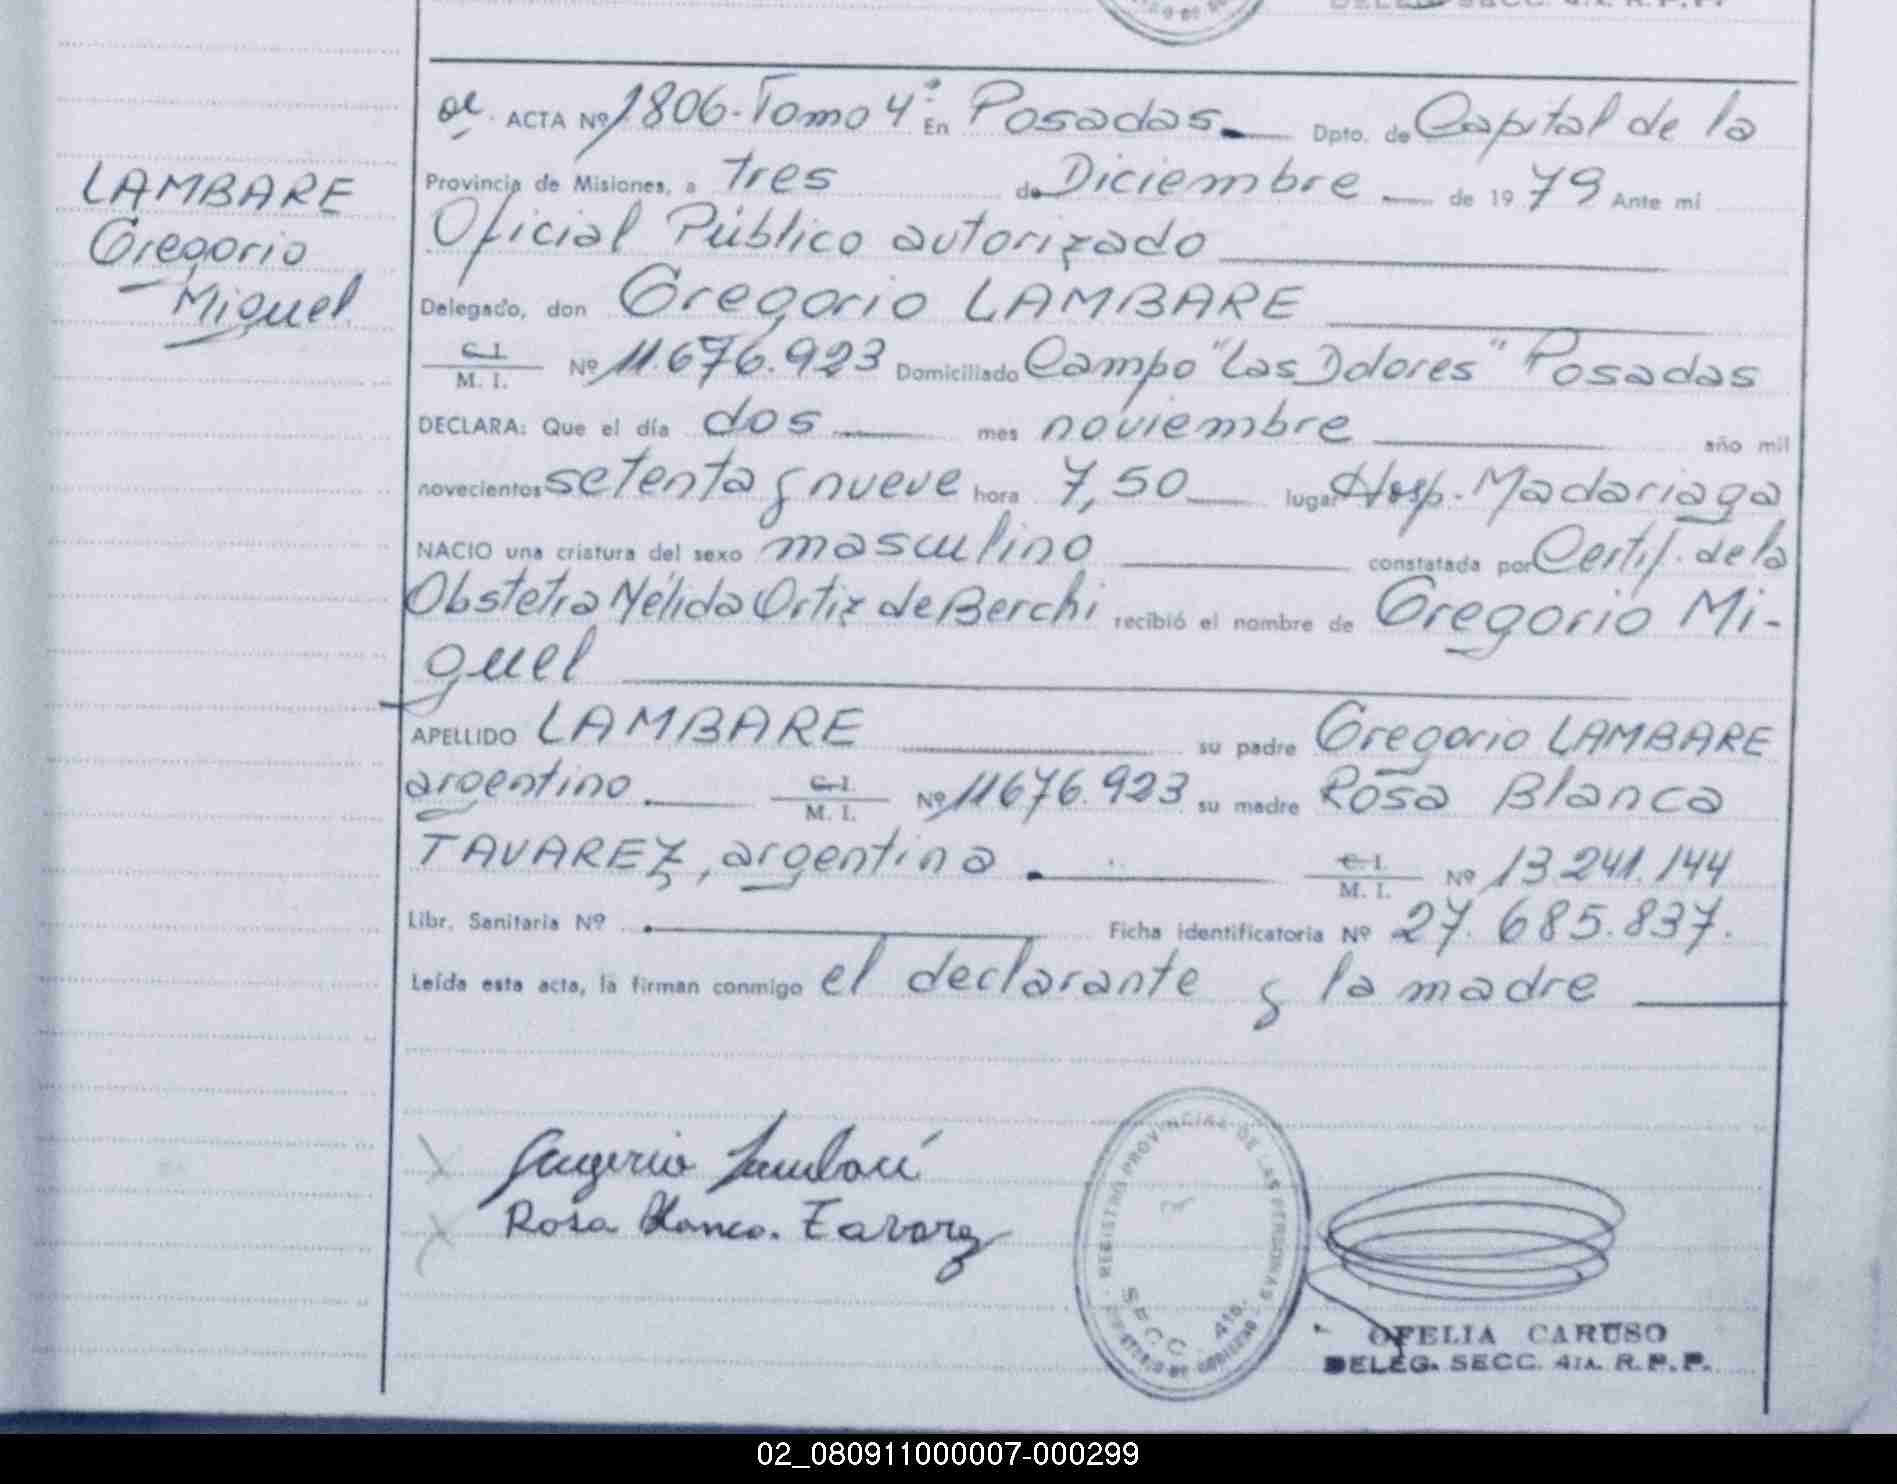 DELEG. SECC. 4TA. R.P.P.
ACTA Nº 1806-Tomo 4º En Posadas Dpto. de Capital de la
LAMBARE
Gregorio
Miguel
Provincia de Misiones, a tres de Diciembre de 19 79 Ante mí
Oficial Público autorizado
Delegado, don Gregorio LAMBARE
C.I. M. I. Nº 11.676.923 Domiciliado Campo "Las Dolores" Posadas
DECLARA: Que el día dos mes noviembre año mil
novecientos setenta y nueve hora 7,50 lugar Hosp. Madariaga
NACIO una criatura del sexo masculino constatada por Certif. de la
Obstetra Nélida Ortiz de Berchi recibió el nombre de Gregorio Mi-
guel
APELLIDO LAMBARE su padre Gregorio LAMBARE
argentino C.I. M. I. Nº 11676.923 su madre Rosa Blanca
TAVAREZ, argentina. C.I. M. I. Nº 13.241.144
Libr. Sanitaria Nº Ficha identificatoria Nº 27.685.837.
Leída esta acta, la firman conmigo el declarante y la madre
Rosa Blanca. Tavarez
REGISTRO PROVINCIAL DE LAS PERSONAS
SECC. 4ta.
OFELIA CARUSO
DELEG. SECC. 4TA. R.P.P.
02_080911000007-000299